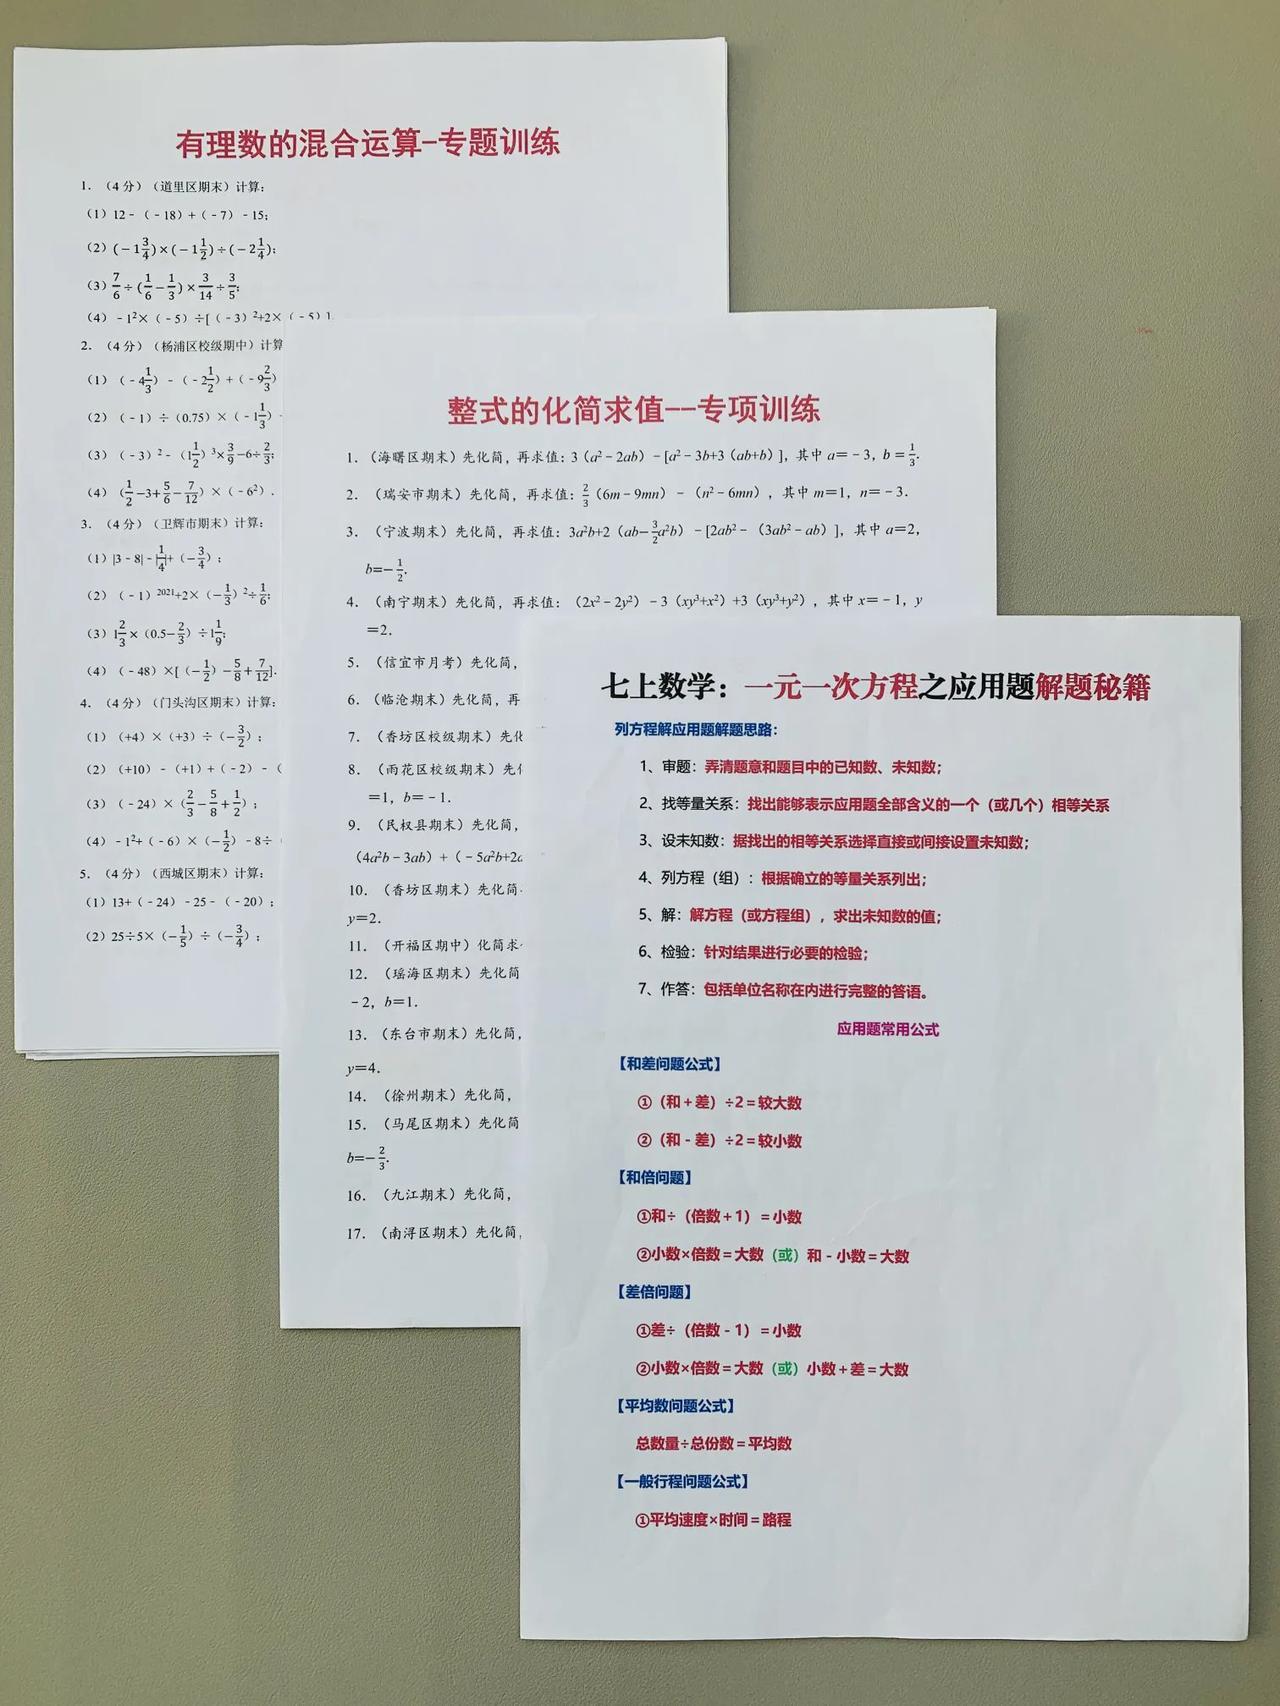 有理数的混合运算-专题训练
1. （4 分）（道里区期末）计算：
（1）12-（-18）+（-7）-15;
（2）(-1 3/4)×(-1 1/2)÷(-2 1/4);
（3）7/6÷(1/6-1/3)×3/14÷3/5;
（4）-1²×（-5）÷[（-3）²+2×（-5）].
2. （4 分）（杨浦区校级期中）计算
（1）（-4 1/3）-（-2 1/2）+（-9 2/3）
（2）（-1）÷（0.75）×（-1 1/3）
（3）（-3）²-（1 1/2）³×3/9-6÷2/3;
（4）（1/2-3+5/6-7/12）×（-6²）.
3. （4 分）（卫辉市期末）计算：
（1）|3-8|-|1/4|+（-3/4）;
（2）（-1）²⁰²¹+2×（-1/3）²÷1/6;
（3）1 2/3×（0.5-2/3）÷1 1/9;
（4）（-48）×[（-1/2）-5/8+7/12].
4. （4 分）（门头沟区期末）计算：
（1）（+4）×（+3）÷（-3/2）;
（2）（+10）-（+1）+（-2）-（
（3）（-24）×（2/3-5/8+1/2）;
（4）-1²+（-6）×（-1/2）-8÷（
5. （4 分）（西城区期末）计算：
（1）13+（-24）-25-（-20）;
（2）25÷5×（-1/5）÷（-3/4）;
整式的化简求值--专项训练
1. （海曙区期末）先化简，再求值：3（a²-2ab）-[a²-3b+3（ab+b）]，其中 a=-3，b=1/3.
2. （瑞安市期末）先化简，再求值：2/3（6m-9mn）-（n²-6mn），其中 m=1，n=-3.
3. （宁波期末）先化简，再求值：3a²b+2（ab-3/2a²b）-[2ab²-（3ab²-ab）]，其中 a=2，
b=-1/2.
4. （南宁期末）先化简，再求值：（2x²-2y²）-3（xy³+x²）+3（xy³+y²），其中 x=-1，y
=2.
5. （信宜市月考）先化简，
6. （临沧期末）先化简，再
7. （香坊区校级期末）先化
8. （雨花区校级期末）先化
=1，b=-1.
9. （民权县期末）先化简，
（4a²b-3ab）+（-5a²b+2a
10. （香坊区期末）先化简
y=2.
11. （开福区期中）化简求
12. （瑶海区期末）先化简
-2，b=1.
13. （东台市期末）先化简，
y=4.
14. （徐州期末）先化简，
15. （马尾区期末）先化简
b=-2/3.
16. （九江期末）先化简，
17. （南浔区期末）先化简，
七上数学：一元一次方程之应用题解题秘籍
列方程解应用题解题思路：
1、审题：弄清题意和题目中的已知数、未知数；
2、找等量关系：找出能够表示应用题全部含义的一个（或几个）相等关系
3、设未知数：据找出的相等关系选择直接或间接设置未知数；
4、列方程（组）：根据确立的等量关系列出；
5、解：解方程（或方程组），求出未知数的值；
6、检验：针对结果进行必要的检验；
7、作答：包括单位名称在内进行完整的答语。
应用题常用公式
【和差问题公式】
①（和＋差）÷2＝较大数
②（和－差）÷2＝较小数
【和倍问题】
①和÷（倍数＋1）＝小数
②小数×倍数＝大数（或）和－小数＝大数
【差倍问题】
①差÷（倍数－1）＝小数
②小数×倍数＝大数（或）小数＋差＝大数
【平均数问题公式】
总数量÷总份数＝平均数
【一般行程问题公式】
①平均速度×时间＝路程